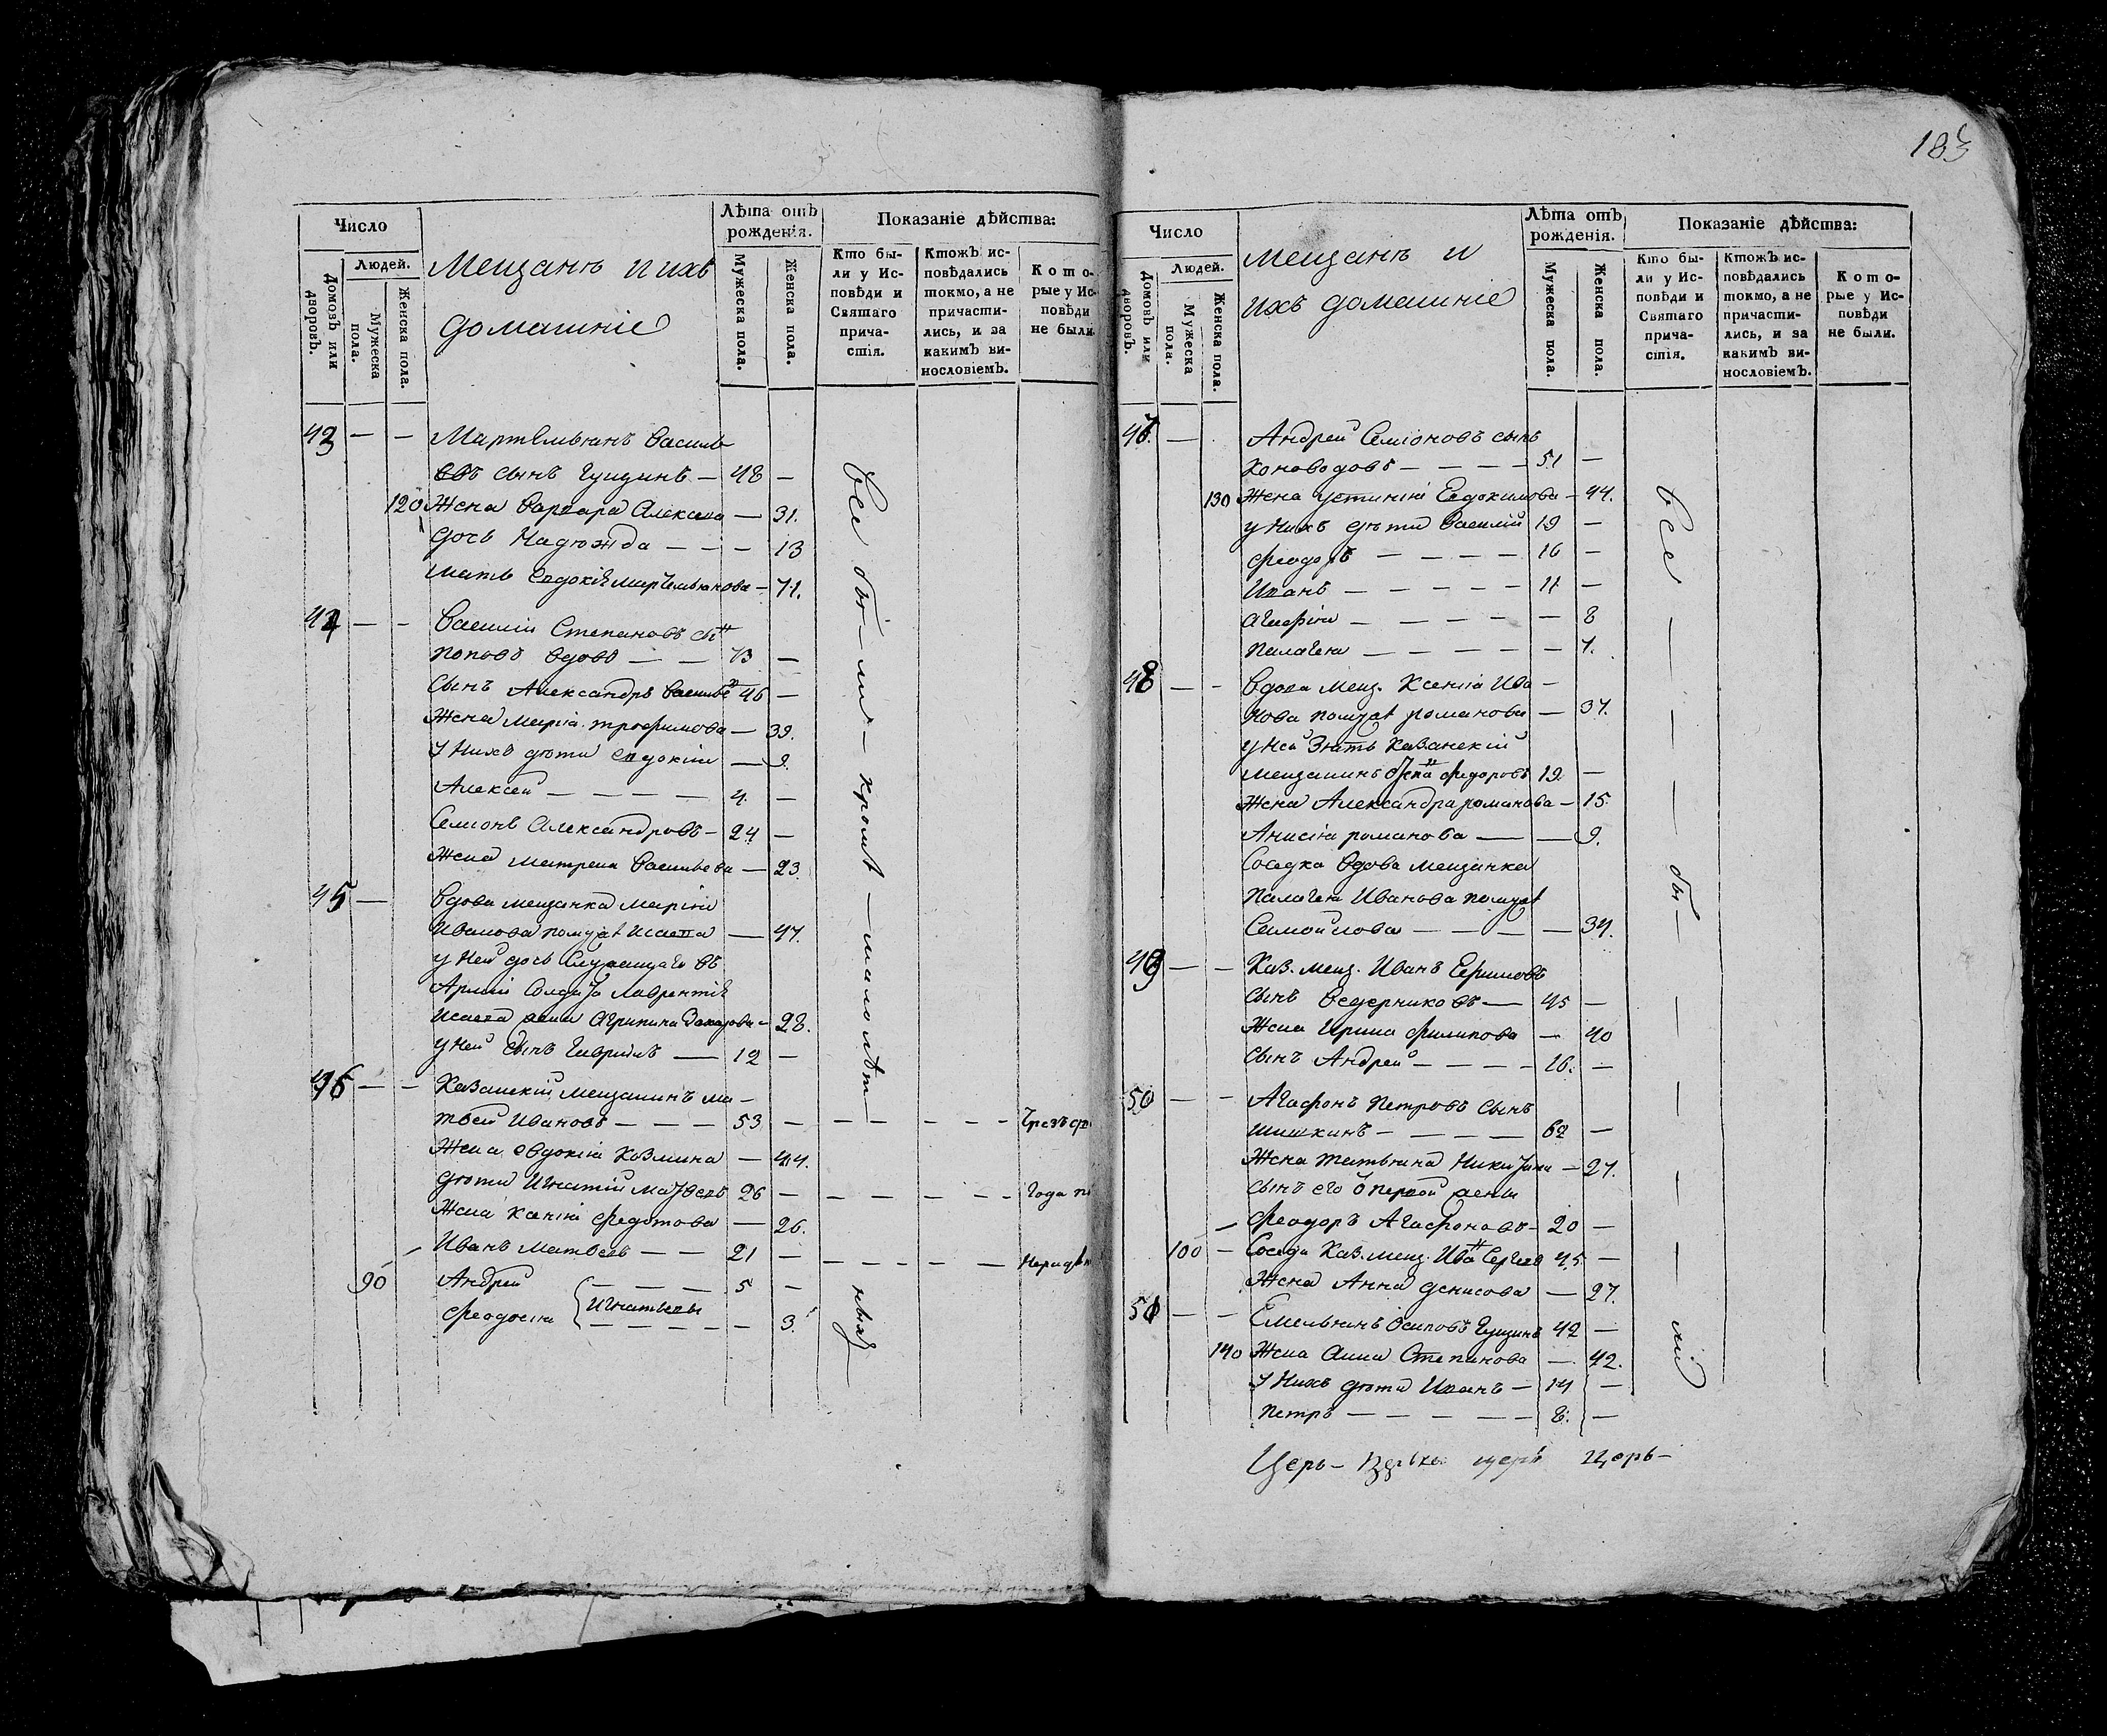 Число
Людей.
Домовъ или дворовъ.
Мужеска пола.
Женска пола.
Мещанъ и ихъ
домашніе
Лѣта отъ рожденія.
Мужеска пола.
Женска пола.
Показаніе дѣйства:
Кто были у Исповѣди и Святаго причастія.
Ктожъ исповѣдались токмо, а не причастились, и за какимъ винословіемъ.
Которые у Исповѣди не были.
43 — — Мартемьянъ Василь
евъ сынъ Гущинъ — 48 —
120 Жена Варвара Алексеева — 31.
дочь Надежда — — — 13
мать Евдокія Мартемьянова — 71.
44 — — Василій Степановъ сын
Поповъ вдовъ — — 73 —
сынъ Александръ Васильев 46 —
Жена Марія Трофимова — 39.
у нихъ дѣти Евдокия — 9.
Алексей — — — — 4. —
Семіонъ Александровъ — 24 —
Жена Матрена Васильева — 23.
45 — Вдова мещанка Марія
Иванова по мужѣ Исаева — 47.
у ней дочь служащаго въ
Арміи солдата Лаврентія
Исаева жена Агрипина Захарова — 28.
у ней сынъ Гаврилъ — 12 —
46 — — Казанскій мещанинъ Ма-
твей Ивановъ — — — 53 — — — — — — Чрезъ
Жена Евдокія Козмина — 44.
дѣти Игнатій Матвеевъ 26 — — — — — — года
Жена Ксенія Федотова — 26.
Иванъ Матвеевъ — — 21 — — — — — —
90 Андрей — — — 5 —
Феодосия Игнатьевы — 3.
все бы-ли-кромѣ-малолѣт-
ныхъ
183
Число
Людей.
Домовъ или дворовъ.
Мужеска пола.
Женска пола.
мещанъ и
ихъ домашніе
Лѣта отъ рожденія.
Мужеска пола.
Женска пола.
Показаніе дѣйства:
Кто были у Исповѣди и Святаго причастія.
Ктожъ исповѣдались токмо, а не причастились, и за какимъ винословіемъ.
Которые у Исповѣди не были.
Андрей Семіоновъ сынъ
Коноводовъ — — — — 51 —
130 Жена Устинія Евдокимова — 44.
у нихъ дѣти Василій 19 —
Феодоръ — — — — 16 —
Иванъ — — — — — 11 —
Агафія — — — — — 8
Палагея — — — — — 7.
48 — — Вдова мещ. Ксенія Ива —
нова по мужѣ Романова — 37.
у ней зять Казанскій
мещанинъ Федоровъ 19. —
Жена Александра Романова — 15.
Анисія Романова — — 9.
Соседка вдова мещанка
Палагея Иванова по мужѣ
Самойлова — — — — 34.
49 — — Каз. мещ. Иванъ Ефимовъ
сынъ Ведерниковъ — 45 —
Жена Ирина Филипова — 40
сынъ Андрей — — — — 16. —
50 — — Агафонъ Петровъ сынъ
Шишкинъ — — — — 62 —
Жена Татьяна Никитина — 27.
сынъ его отъ первой жены
Феодоръ Агафоновъ — 20 —
100 — Соседъ Каз. мещ. Иван Сергеев 45 —
Жена Анна Денисова — 27.
51 — — Емельянъ Осиповъ Гущинъ 42 —
140 Жена Анна Степанова — 42.
у нихъ дѣти Иванъ — 14 —
Петръ — — — — — 8. —
все — — — — бы — — — — — ли
Церь- церь Церь-